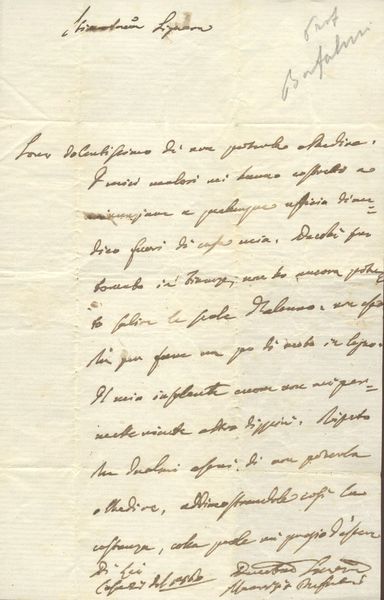 Prof
Bufalini
Signora
Sono dolentissimo di non poterla obbedire.
I miei malori mi hanno costretto a
rinunziare a qualunque ufficio di me-
dico fuori di casa mia. Dacchè son
tornato in Firenze, non ho ancora potu-
to salire le scale d'alcuno, non
per fare un po' di moto in legno.
Il mio ancora non mi per-
mette niente altro di più. Ripeto
che duolmi assai di non poterla
obbedire, addimostrandole così la
costanza, colla quale mi pregio d'essere
Di Lei
Casa 27
Maurizio Bufalini